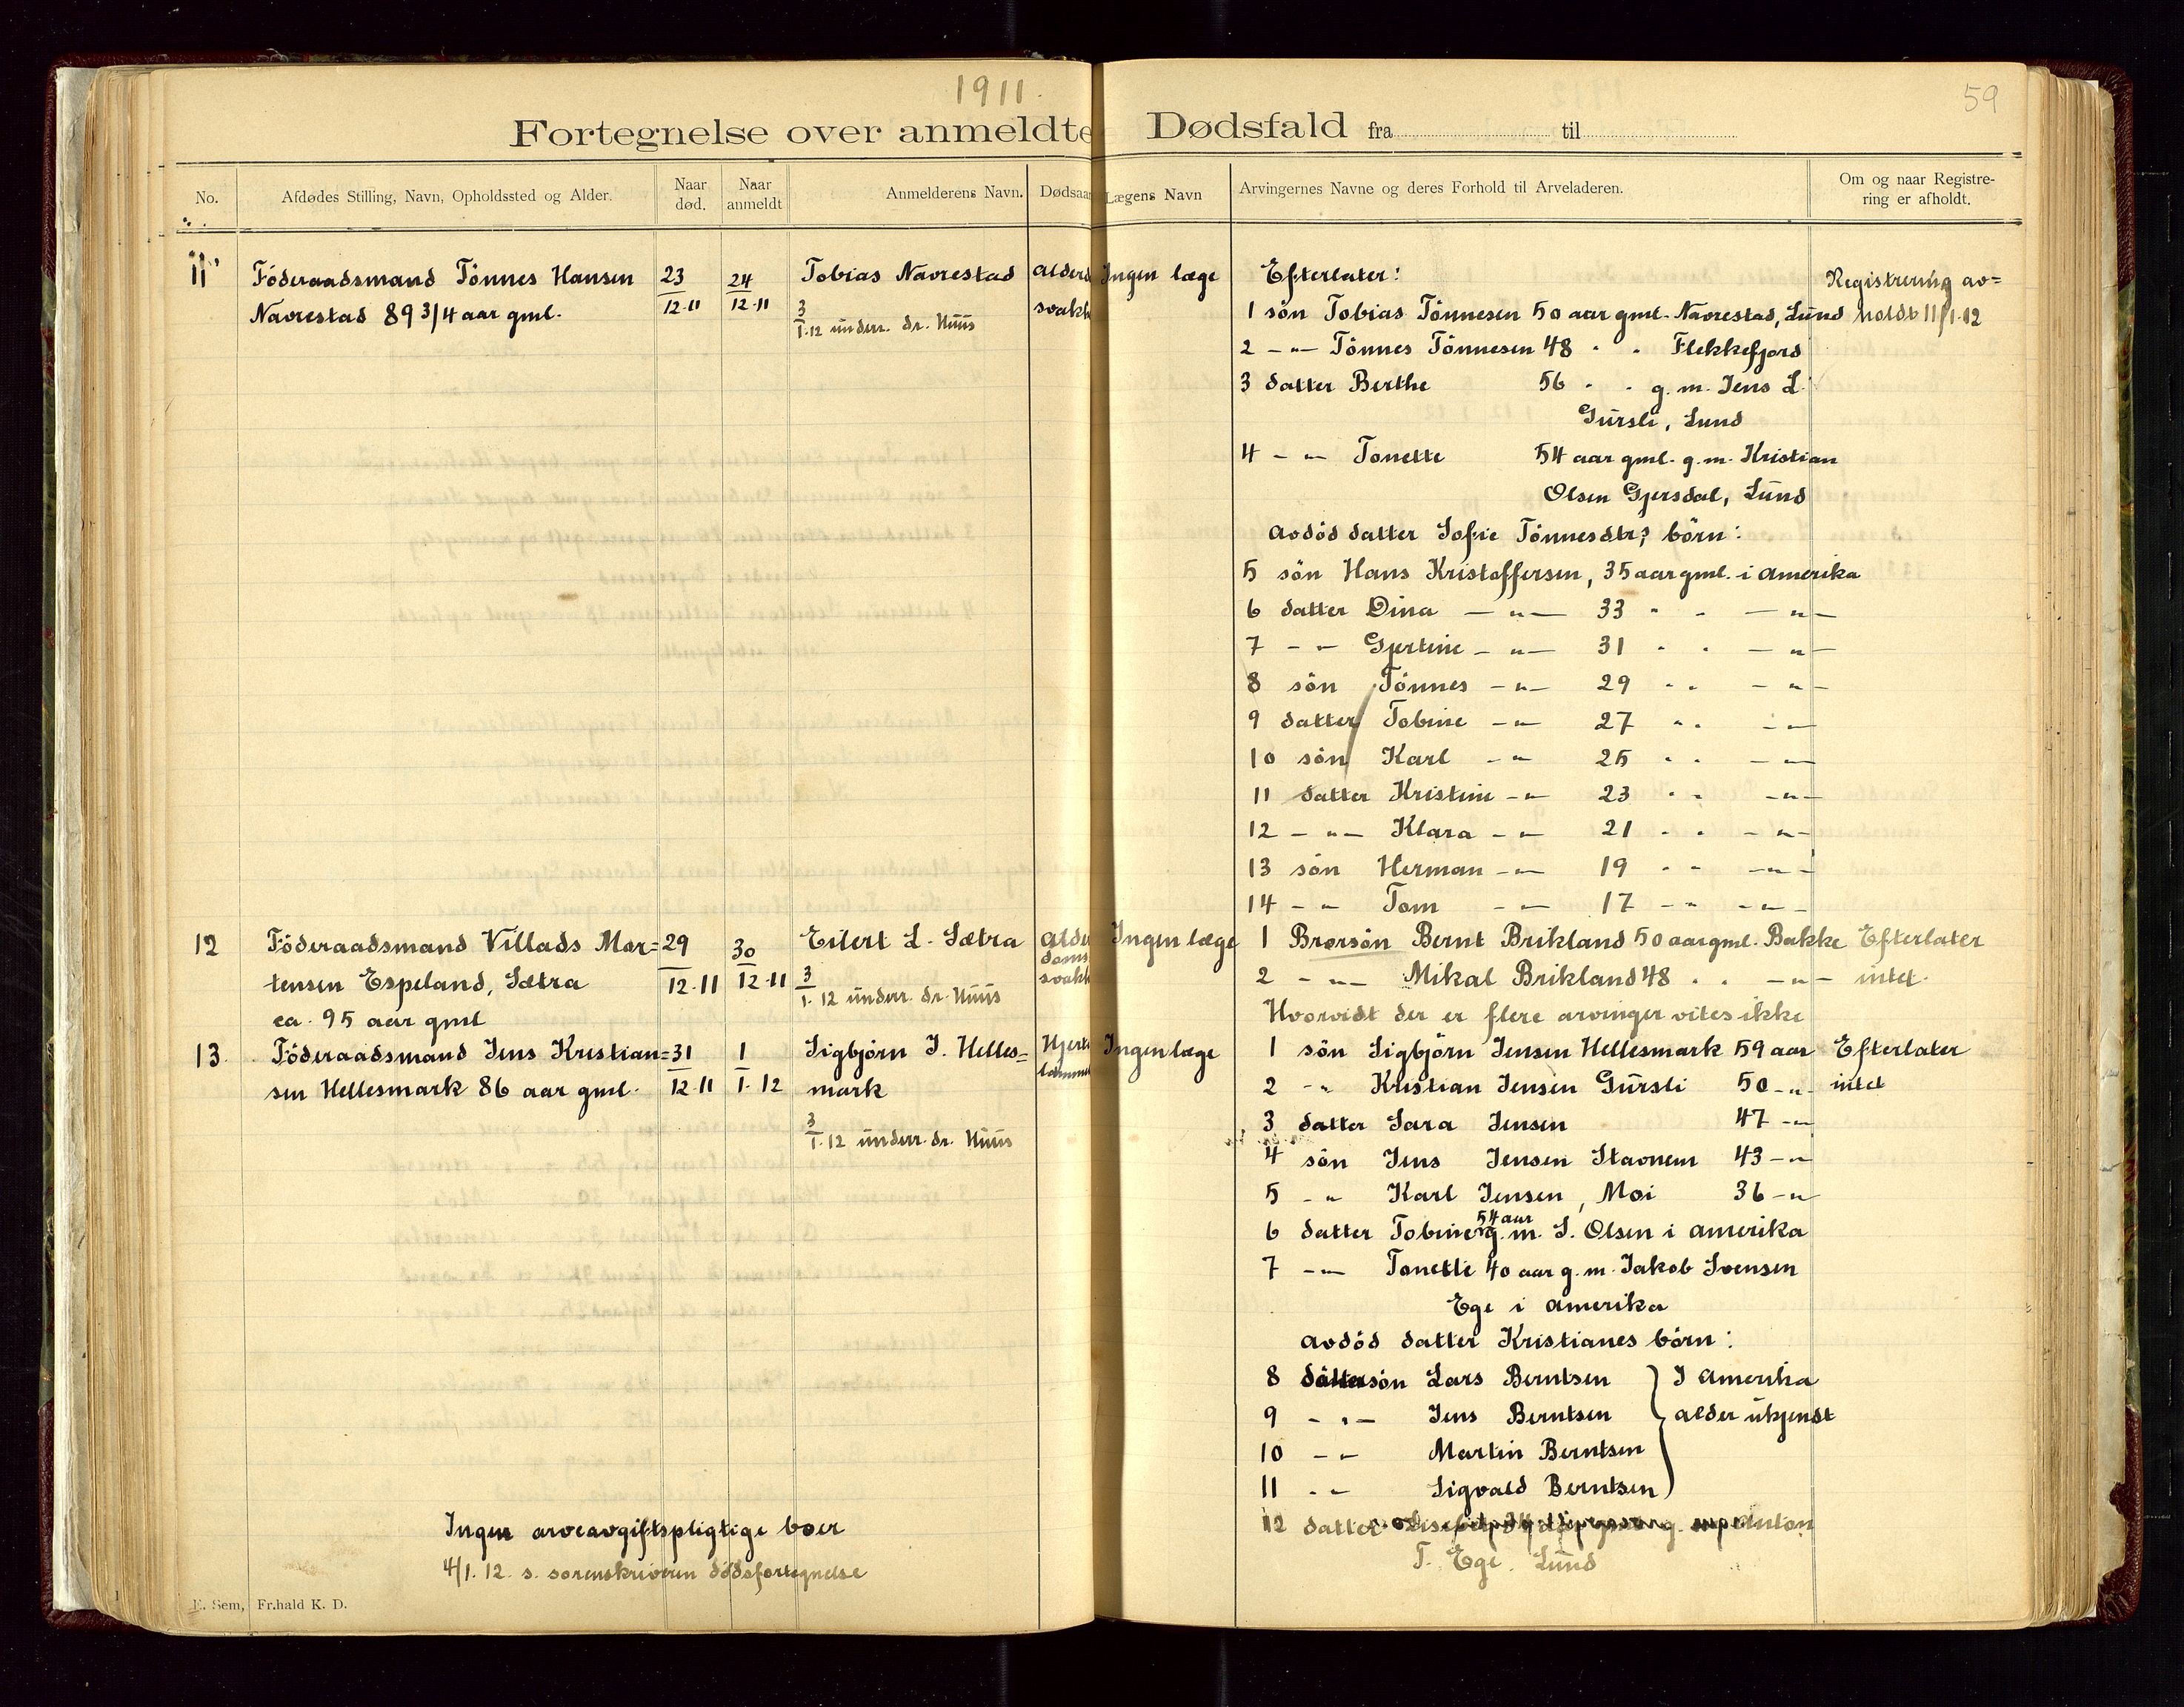 1911.
59
Fortegnelse over anmeldte Dødsfald fra til
No.
Afdødes Stilling, Navn, Opholdssted og Alder.
Naar død.
Naar anmeldt
Anmelderens Navn.
Dødsaar
Lægens Navn
Arvingernes Navne og deres Forhold til Arveladeren.
Om og naar Registre-
ring er afholdt.
11 Föderaadsmand Tönnes Hansen 23/12-11 24/12-11 Tobias Navrestad alderd Ingen læge Efterlater: Registrering av=
Navrestad 89 3/4 aar gml. 3/1.12 underr. dr. Huus svakh 1 sön Tobias Tönnesen 50 aar gml. Navrestad, Lund holdt 11/1-12
2 - " - Tönnes Tönnesen 48 " " Flekkefjord
3 datter Berthe 56 " " g. m. Jens L.
Gursli, Lund
4 - " - Tonette 54 aar gml. g. m. Kristian
Olsen Gjersdal, Lund
avdöd datter Sofie Tönnesdtr's börn:
5 sön Hans Kristoffersen, 35 aar gml. i Amerika
6 datter Dina - " - 33 " " - " -
7 - " - Gjertine - " - 31 " " - " -
8 sön Tönnes - " - 29 " " - " -
9 datter Tobine - " - 27 " " - " -
10 sön Karl - " - 25 " " - " -
11 datter Kristine - " - 23 " " - " -
12 - " - Klara - " - 21 " " - " -
13 sön Herman - " - 19 " " - " -
14 - " - Tom - " - 17 - " - " -
12 Föderaadsmand Villads Mor= 29/12-11 30/12-11 Eilert L. Sætra Alder Ingen læge 1 Brorsön Bernt Brikland 50 aar gml. Bakke Efterlater
tensen Espeland, Sætra 3/1.12 underr. dr. Huus doms svakh 2 - " - Mikal Brikland 48 " " - " - intet.
ca. 95 aar gml Hvorvidt der er flere arvinger vites ikke
13. Föderaadsmand Jens Kristian= 31/12-11 1/1.12 Sigbjörn J. Helles= Hjerte Ingen læge 1 sön Sigbjörn Jensen Hellesmark 59 aar Efterlater
sen Hellesmark 86 aar gml. mark lamme 2 - " Kristian Jensen Gursli 50 - " - intet
3/1.12 underr. dr. Huus 3 datter Sara Jensen 47 - "
4 sön Jens Jensen Stavnem 43 - "
5 - " Karl Jensen, Moi 36 - "
6 datter Tobine 54 aar g. m. S. Olsen i Amerika
7 - " - Tonette 40 aar g. m. Jakob Svensen
Ege i Amerika
avdöd datter Kristianes börn:
8 dattersön Lars Berntsen I Amerika
9 - " - Jens Berntsen alder ukjendt
10 - " Martin Berntsen
11 - " Sigvald Berntsen
12 datter g. Anton
T. Ege. Lund
Ingen arveavgiftspligtige boer
4/1. 12. s. sorenskriveren dödsfortegnelse
E. Sem, Fr.hald K. D.